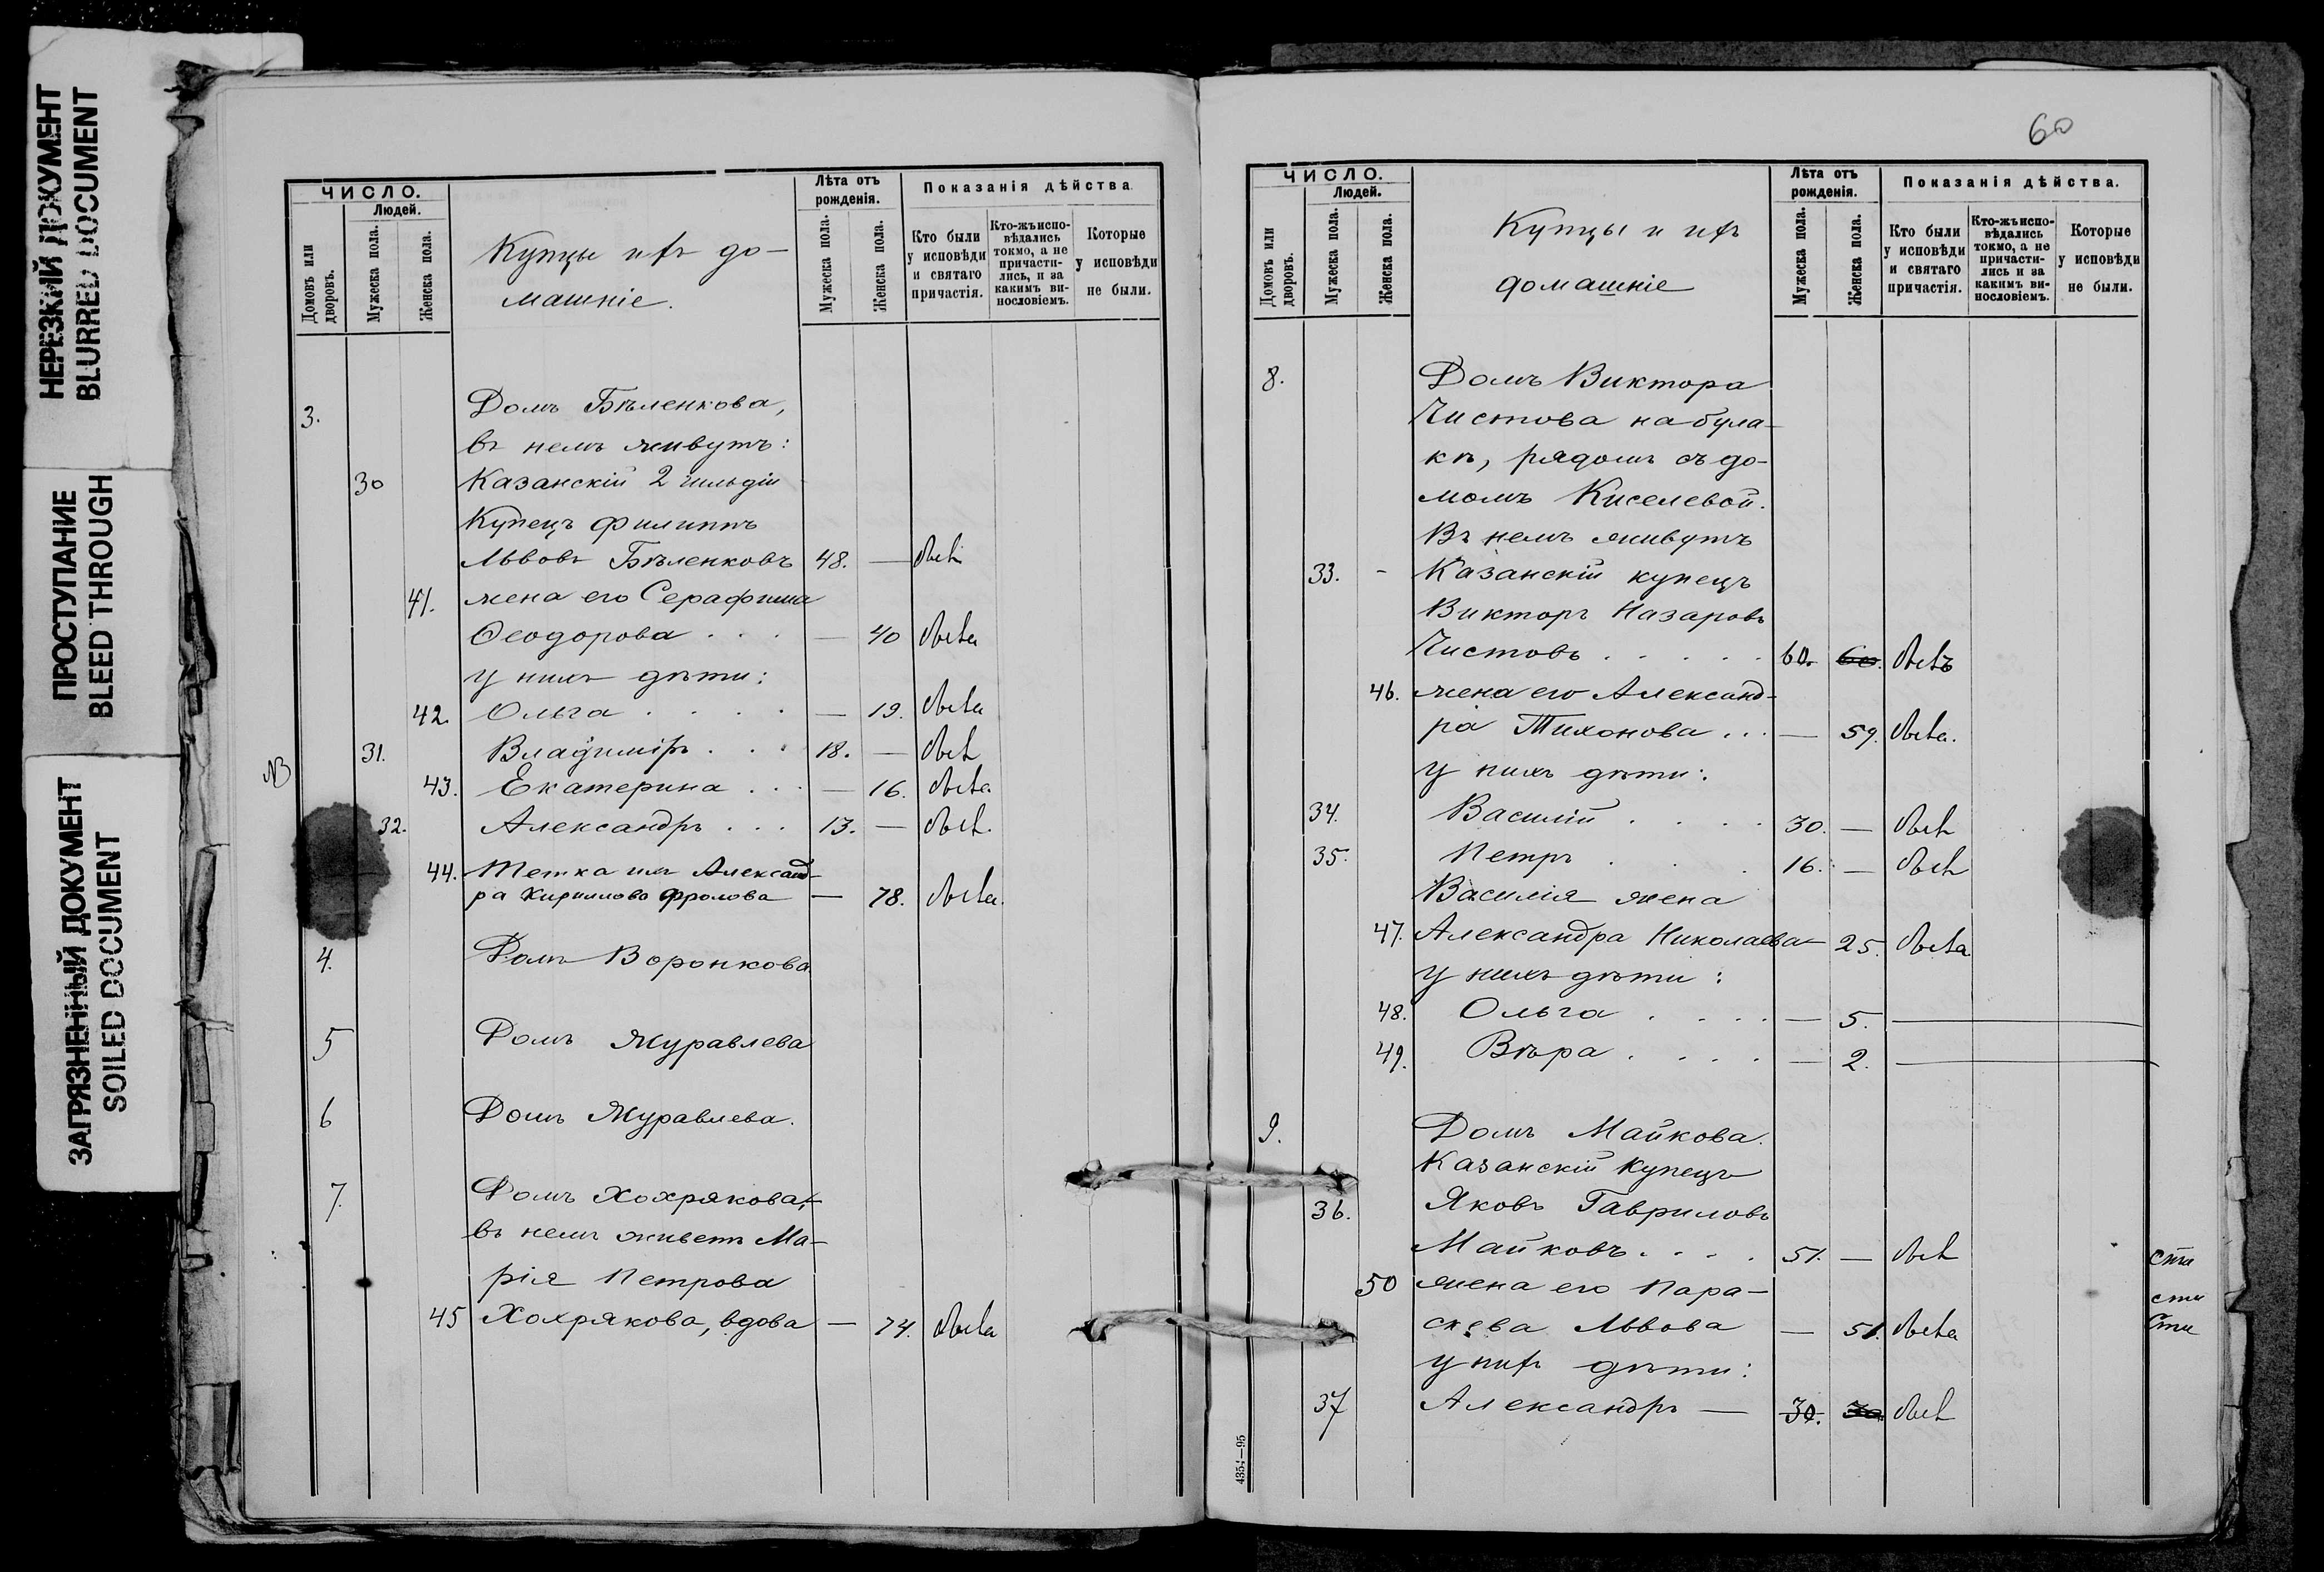 НЕРЕЗКИЙ ДОКУМЕНТ
BLURRED DOCUMENT
ПРОСТУПАНИЕ
BLEED THROUGH
ЗАГРЯЗНЕННЫЙ ДОКУМЕНТ
SOILED DOCUMENT
ЧИСЛО.
Людей.
Домовъ или дворовъ.
Мужеска пола.
Женска пола.
Купцы и ихъ до-
машніе.
Лѣта отъ рожденія.
Мужеска пола.
Женска пола.
Показанія дѣйства.
Кто были у исповѣди и святаго причастія.
Кто-жъ испо-вѣдались токмо, а не причасти-лись, и за какимъ ви-нословіемъ.
Которые у исповѣди не были.
3. Домъ Бѣленкова,
въ немъ живутъ:
30 Казанскій 2 гильдіи
Купецъ Филиппъ
Львовъ Бѣленковъ 48. —
41. жена его Серафима
Ѳеодорова . . . — 40
у нихъ дѣти:
42. Ольга . . . . — 19.
NB 31. Владиміръ . . . 18. —
43. Екатерина . . . — 16.
32. Александръ . . . 13. —
44. Тетка ихъ Александ-
ра Кириллова Фролова — 78.
4. Домъ Воронкова
5 Домъ Журавлева
6 Домъ Журавлева.
7. Домъ Хохрякова,
въ немъ живетъ Ма-
рія Петрова
45 Хохрякова, вдова — 74.
60
ЧИСЛО.
Людей.
Домовъ или дворовъ.
Мужеска пола.
Женска пола.
Купцы и ихъ
домашніе
Лѣта отъ рожденія.
Мужеска пола.
Женска пола.
Показанія дѣйства.
Кто были у исповѣди и святаго причастія.
Кто-жъ испо-вѣдались токмо, а не причасти-лись и за какимъ ви-нословіемъ.
Которые у исповѣди не были.
8. Домъ Виктора
Чистова на була-
кѣ, рядомъ съ до-
момъ Киселевой.
Въ немъ живутъ
33. - Казанскій купецъ
Викторъ Назаровъ
Чистовъ . . . . . 60. 60.
46. жена его Александ-
ра Тихонова . . . — 59.
у нихъ дѣти:
34. Василій . . . . 30. —
35. Петръ . . . 16. —
Василія жена
47. Александра Николаева — 25.
у нихъ дѣти:
48. Ольга . . . . — 5. —
49. Вѣра . . . . — 2. —
9. Домъ Майкова.
Казанскій Купецъ
36. Яковъ Гавриловъ
Майковъ . . . . 51. —
50 жена его Пара-
скева Львова — 51.
у нихъ дѣти:
37 Александръ — 30. 30.